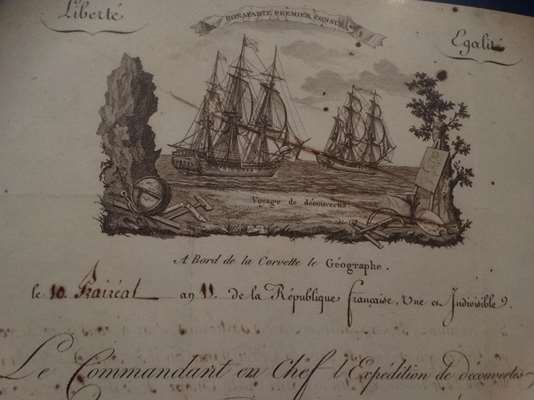 Liberté
BONAPARTE PREMIER CONSUL
Egalité
Voyage de découvertes
A Bord de la Corvette le Géographe.
le 10 Prairéal an 11 de la République française, Une et Indivisible.
Le Commandant en Chef l'Expédition de découvertes